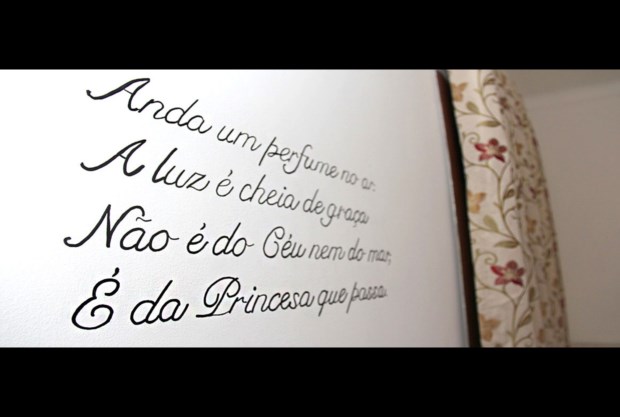 Anda um perfume no ar:
A luz é cheia de graça
Não é do Céu nem do mar,
É da Princesa que passa.